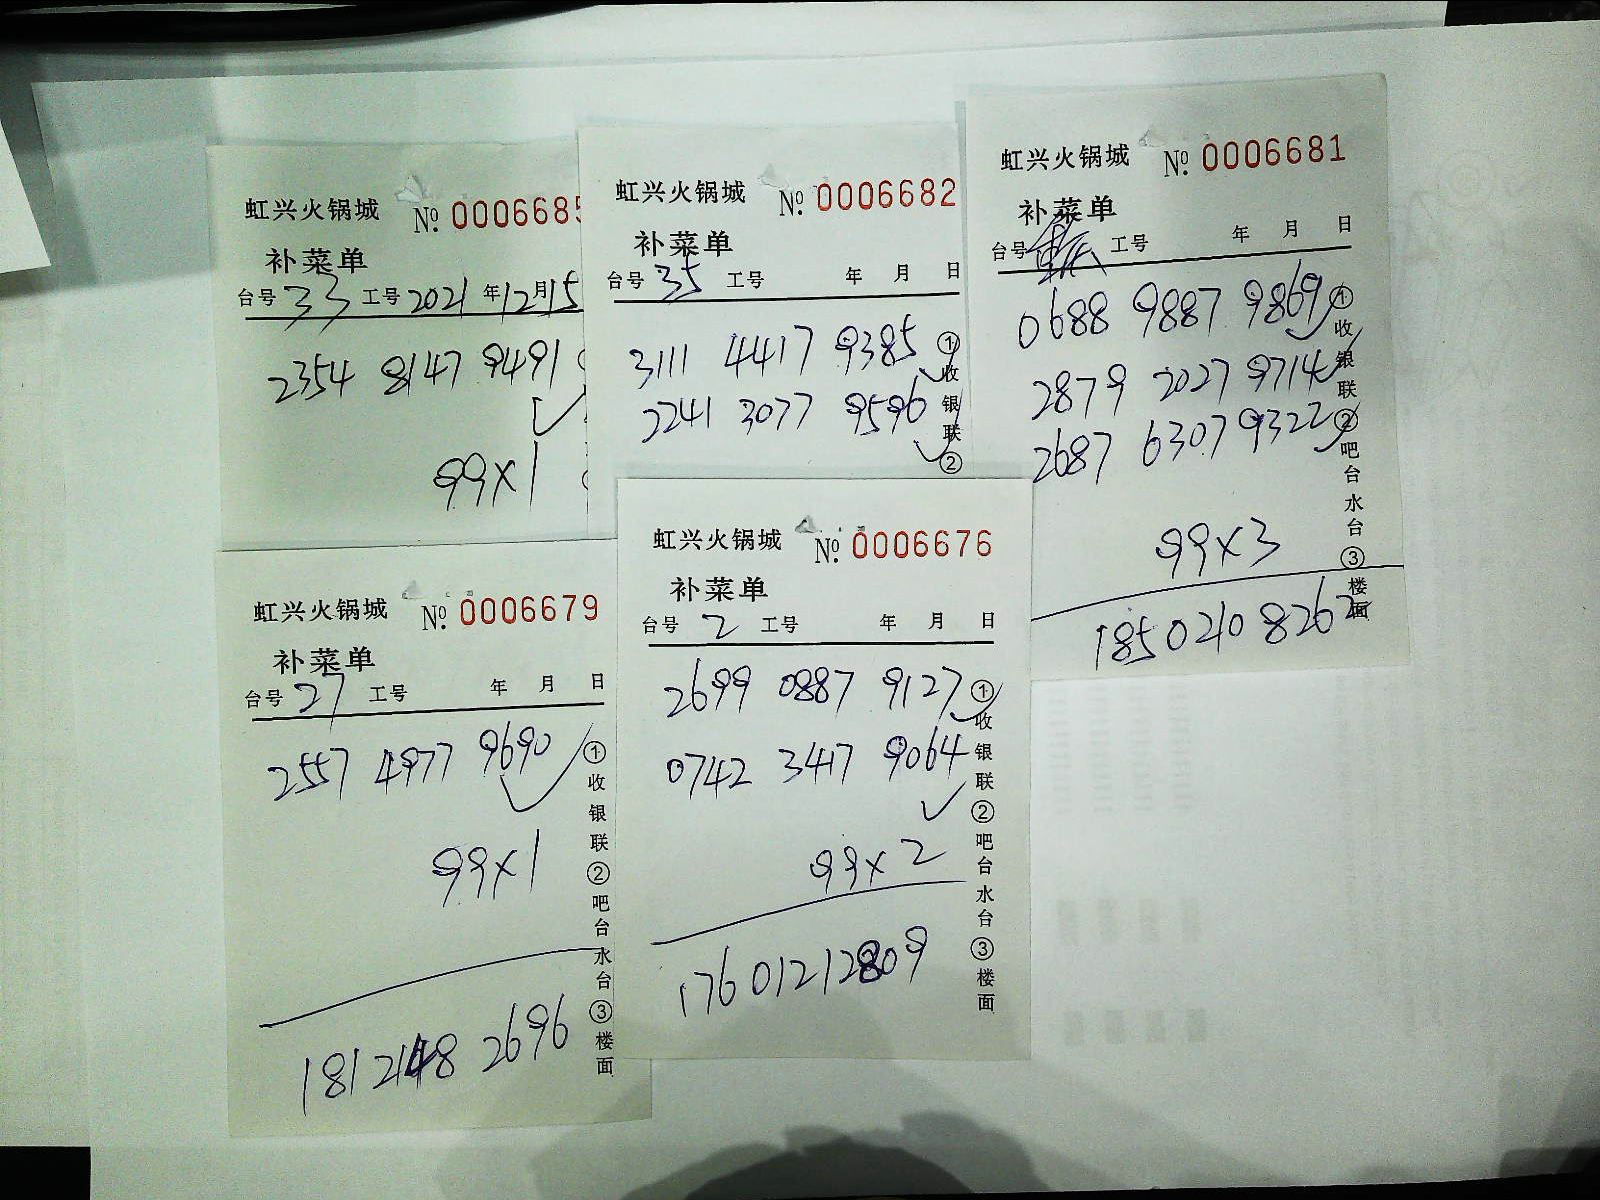 虹兴火锅城 №: 0006685
补菜单
台号 33 工号 2021 年12月15
2354 8147 9491
99×1
虹兴火锅城 №: 0006682
补菜单
台号 35 工号 年 月 日
3111 4417 9385
2241 3077 9596
①收银联②
虹兴火锅城 №: 0006681
补菜单
台号 工号 年 月 日
0688 9887 9869
2879 2027 9714
2687 6307 9322
99×3
185 0210 8262
①收银联②吧台水台③楼面
虹兴火锅城 №: 0006679
补菜单
台号 27 工号 年 月 日
2557 4977 9690
99×1
181 2148 2696
①收银联②吧台水台③楼面
虹兴火锅城 №: 0006676
补菜单
台号 2 工号 年 月 日
2699 0887 9127
0742 3417 9064
99×2
17601212809
①收银联②吧台水台③楼面